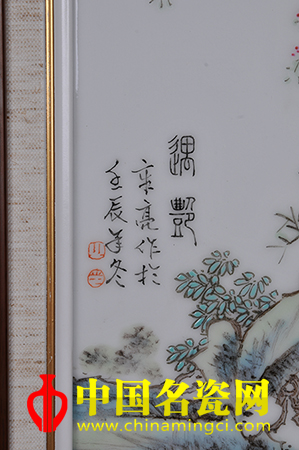 遇豔
亮作於
壬辰年冬
中国名瓷网
www.chinamingci.com